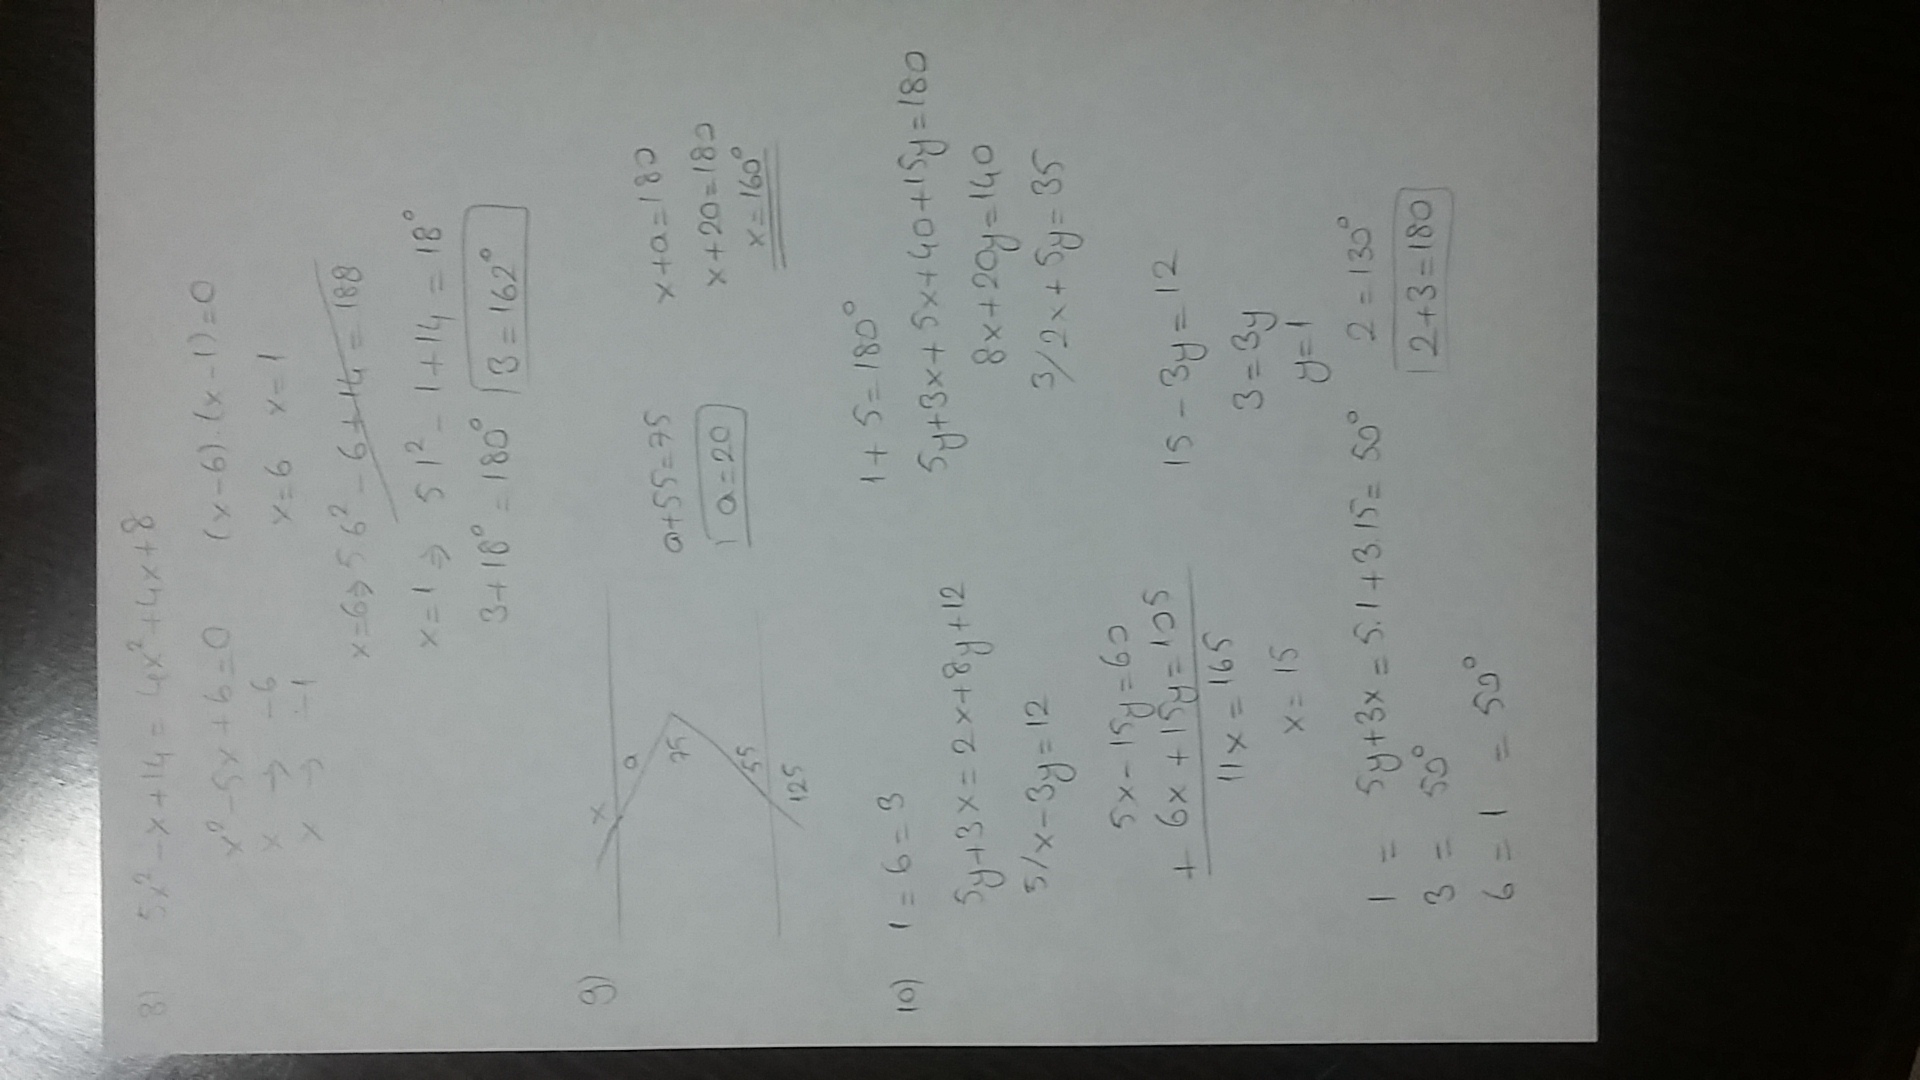 8) 5x² - x + 14 = 4x² + 4x + 8
x² - 5x + 6 = 0 (x - 6) . (x - 1) = 0
x → -6 x = 6 x = 1
x → -1
x = 6 ⇒ 5 6² - 6 + 14 = 188
x = 1 ⇒ 5 1² - 1 + 14 = 18°
3 + 18° = 180° 3 = 162°
9) x a 75 55 125
a + 55 = 75 x + a = 180
a = 20 x + 20 = 180
x = 160°
10) 1 = 6 = 3 1 + 5 = 180°
5y + 3x = 2x + 8y + 12 5y + 3x + 5x + 40 + 15y = 180
8x + 20y = 140
5/ x - 3y = 12 3/ 2x + 5y = 35
5x - 15y = 60
+ 6x + 15y = 105 15 - 3y = 12
11x = 165 3 = 3y
x = 15 y = 1
1 = 5y + 3x = 5.1 + 3.15 = 50° 2 = 130°
3 = 50° 2 + 3 = 180
6 = 1 = 50°